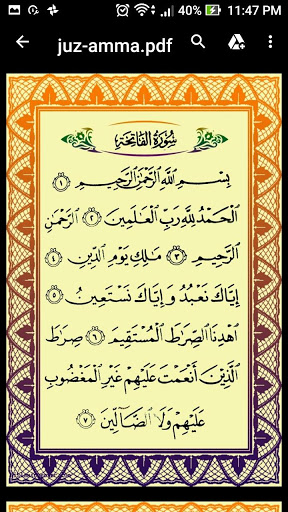 40% 11:47 PM
juz-amma.pdf
سُورَةُ الفَاتِحَةِ
بِسْمِ ٱللَّهِ ٱلرَّحْمَٰنِ ٱلرَّحِيمِ ١
ٱلْحَمْدُ لِلَّهِ رَبِّ ٱلْعَٰلَمِينَ ٢ ٱلرَّحْمَٰنِ
ٱلرَّحِيمِ ٣ مَٰلِكِ يَوْمِ ٱلدِّينِ ٤
إِيَّاكَ نَعْبُدُ وَ إِيَّاكَ نَسْتَعِينُ ٥
ٱهْدِنَا ٱلصِّرَٰطَ ٱلْمُسْتَقِيمَ ٦ صِرَٰطَ
ٱلَّذِينَ أَنْعَمْتَ عَلَيْهِمْ غَيْرِ ٱلْمَغْضُوبِ
عَلَيْهِمْ وَلَا ٱلضَّآلِّينَ ٧